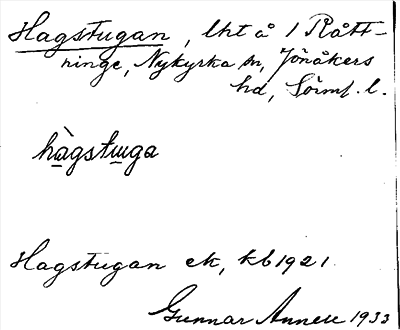 Hagstugan, lht å 1 Rått-
ninge, Nykyrka sn, Jönåkers
hd, Sörml. l.
hàgstuga
Hagstugan ek, kb 1921
Gunnar Annell 1933